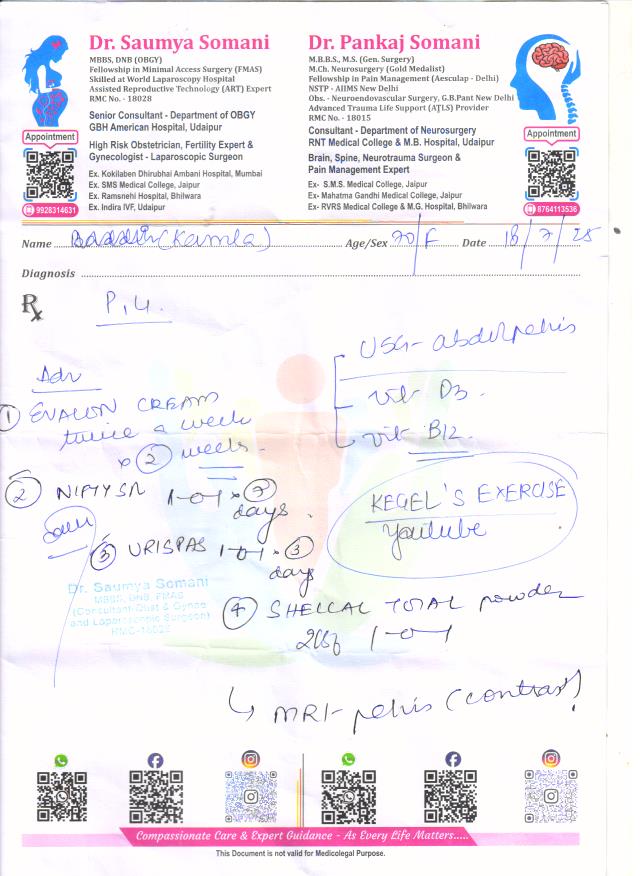 Dr. Saumya Somani
MBBS, DNB (OBGY)
Fellowship in Minimal Access Surgery (FMAS)
Skilled at World Laparoscopy Hospital
Assisted Reproductive Technology (ART) Expert
RMC No. - 18028
Senior Consultant - Department of OBGY
GBH American Hospital, Udaipur
High Risk Obstetrician, Fertility Expert &
Gynecologist - Laparoscopic Surgeon
Ex. Kokilaben Dhirubhai Ambani Hospital, Mumbai
Ex. SMS Medical College, Jaipur
Ex. Ramsnehi Hospital, Bhilwara
Ex. Indira IVF, Udaipur
Appointment
9928314631
Dr. Pankaj Somani
M.B.B.S., M.S. (Gen. Surgery)
M.Ch. Neurosurgery (Gold Medalist)
Fellowship in Pain Management (Aesculap - Delhi)
NSTP - AIIMS New Delhi
Obs. - Neuroendovascular Surgery, G.B.Pant New Delhi
Advanced Trauma Life Support (ATLS) Provider
RMC No. - 18015
Consultant - Department of Neurosurgery
RNT Medical College & M.B. Hospital, Udaipur
Brain, Spine, Neurotrauma Surgeon &
Pain Management Expert
Ex- S.M.S. Medical College, Jaipur
Ex- Mahatma Gandhi Medical College, Jaipur
Ex- RVRS Medical College & M.G. Hospital, Bhilwara
Appointment
8764113536
Name (Kamla) Age/Sex 70/F Date 18/7/25
Diagnosis
Rx
USG- abd/pelvis
vit D3.
vit B12.
Adv
① EVALON CREAM
twice a week
x ② weeks.
② NIFTY SR 1-0-1 x ⑦
days.
KEGEL'S EXERCISE
Youtube
③ URISPAS 1-0-1 x ③
days
Dr. Saumya Somani
MBBS, DNB, FMAS
(Consultant-Obst & Gynae
and Laparoscopic Surgeon)
④ SHELCAL TOTAL powder
1-0-1
↳ MRI- pelvis (contrast)
Compassionate Care & Expert Guidance - As Every Life Matters.....
This Document is not valid for Medicolegal Purpose.